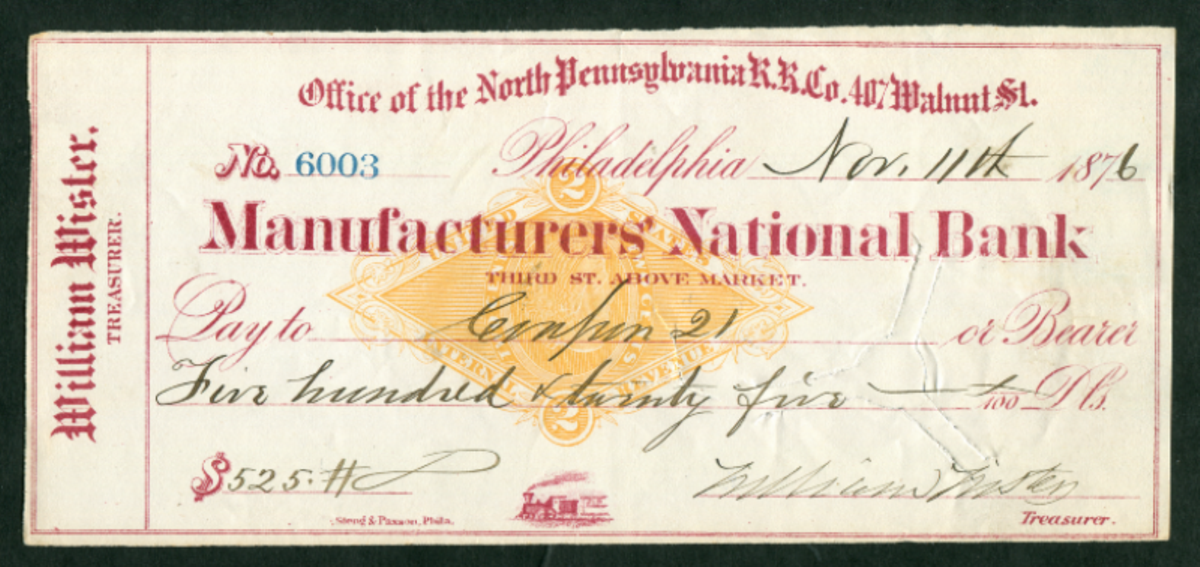 William Wister.
TREASURER.
Office of the North Pennsylvania R.R. Co. 407 Walnut St.
No. 6003 Philadelphia Nov. 11th 1876
2
UNITED STATES
Manufacturers' National Bank
THIRD ST. ABOVE MARKET.
Pay to Coupon 21 or Bearer
INTERNAL REVENUE
Five hundred & twenty five /100 Dls.
2
$525.
William Wister
Treasurer.